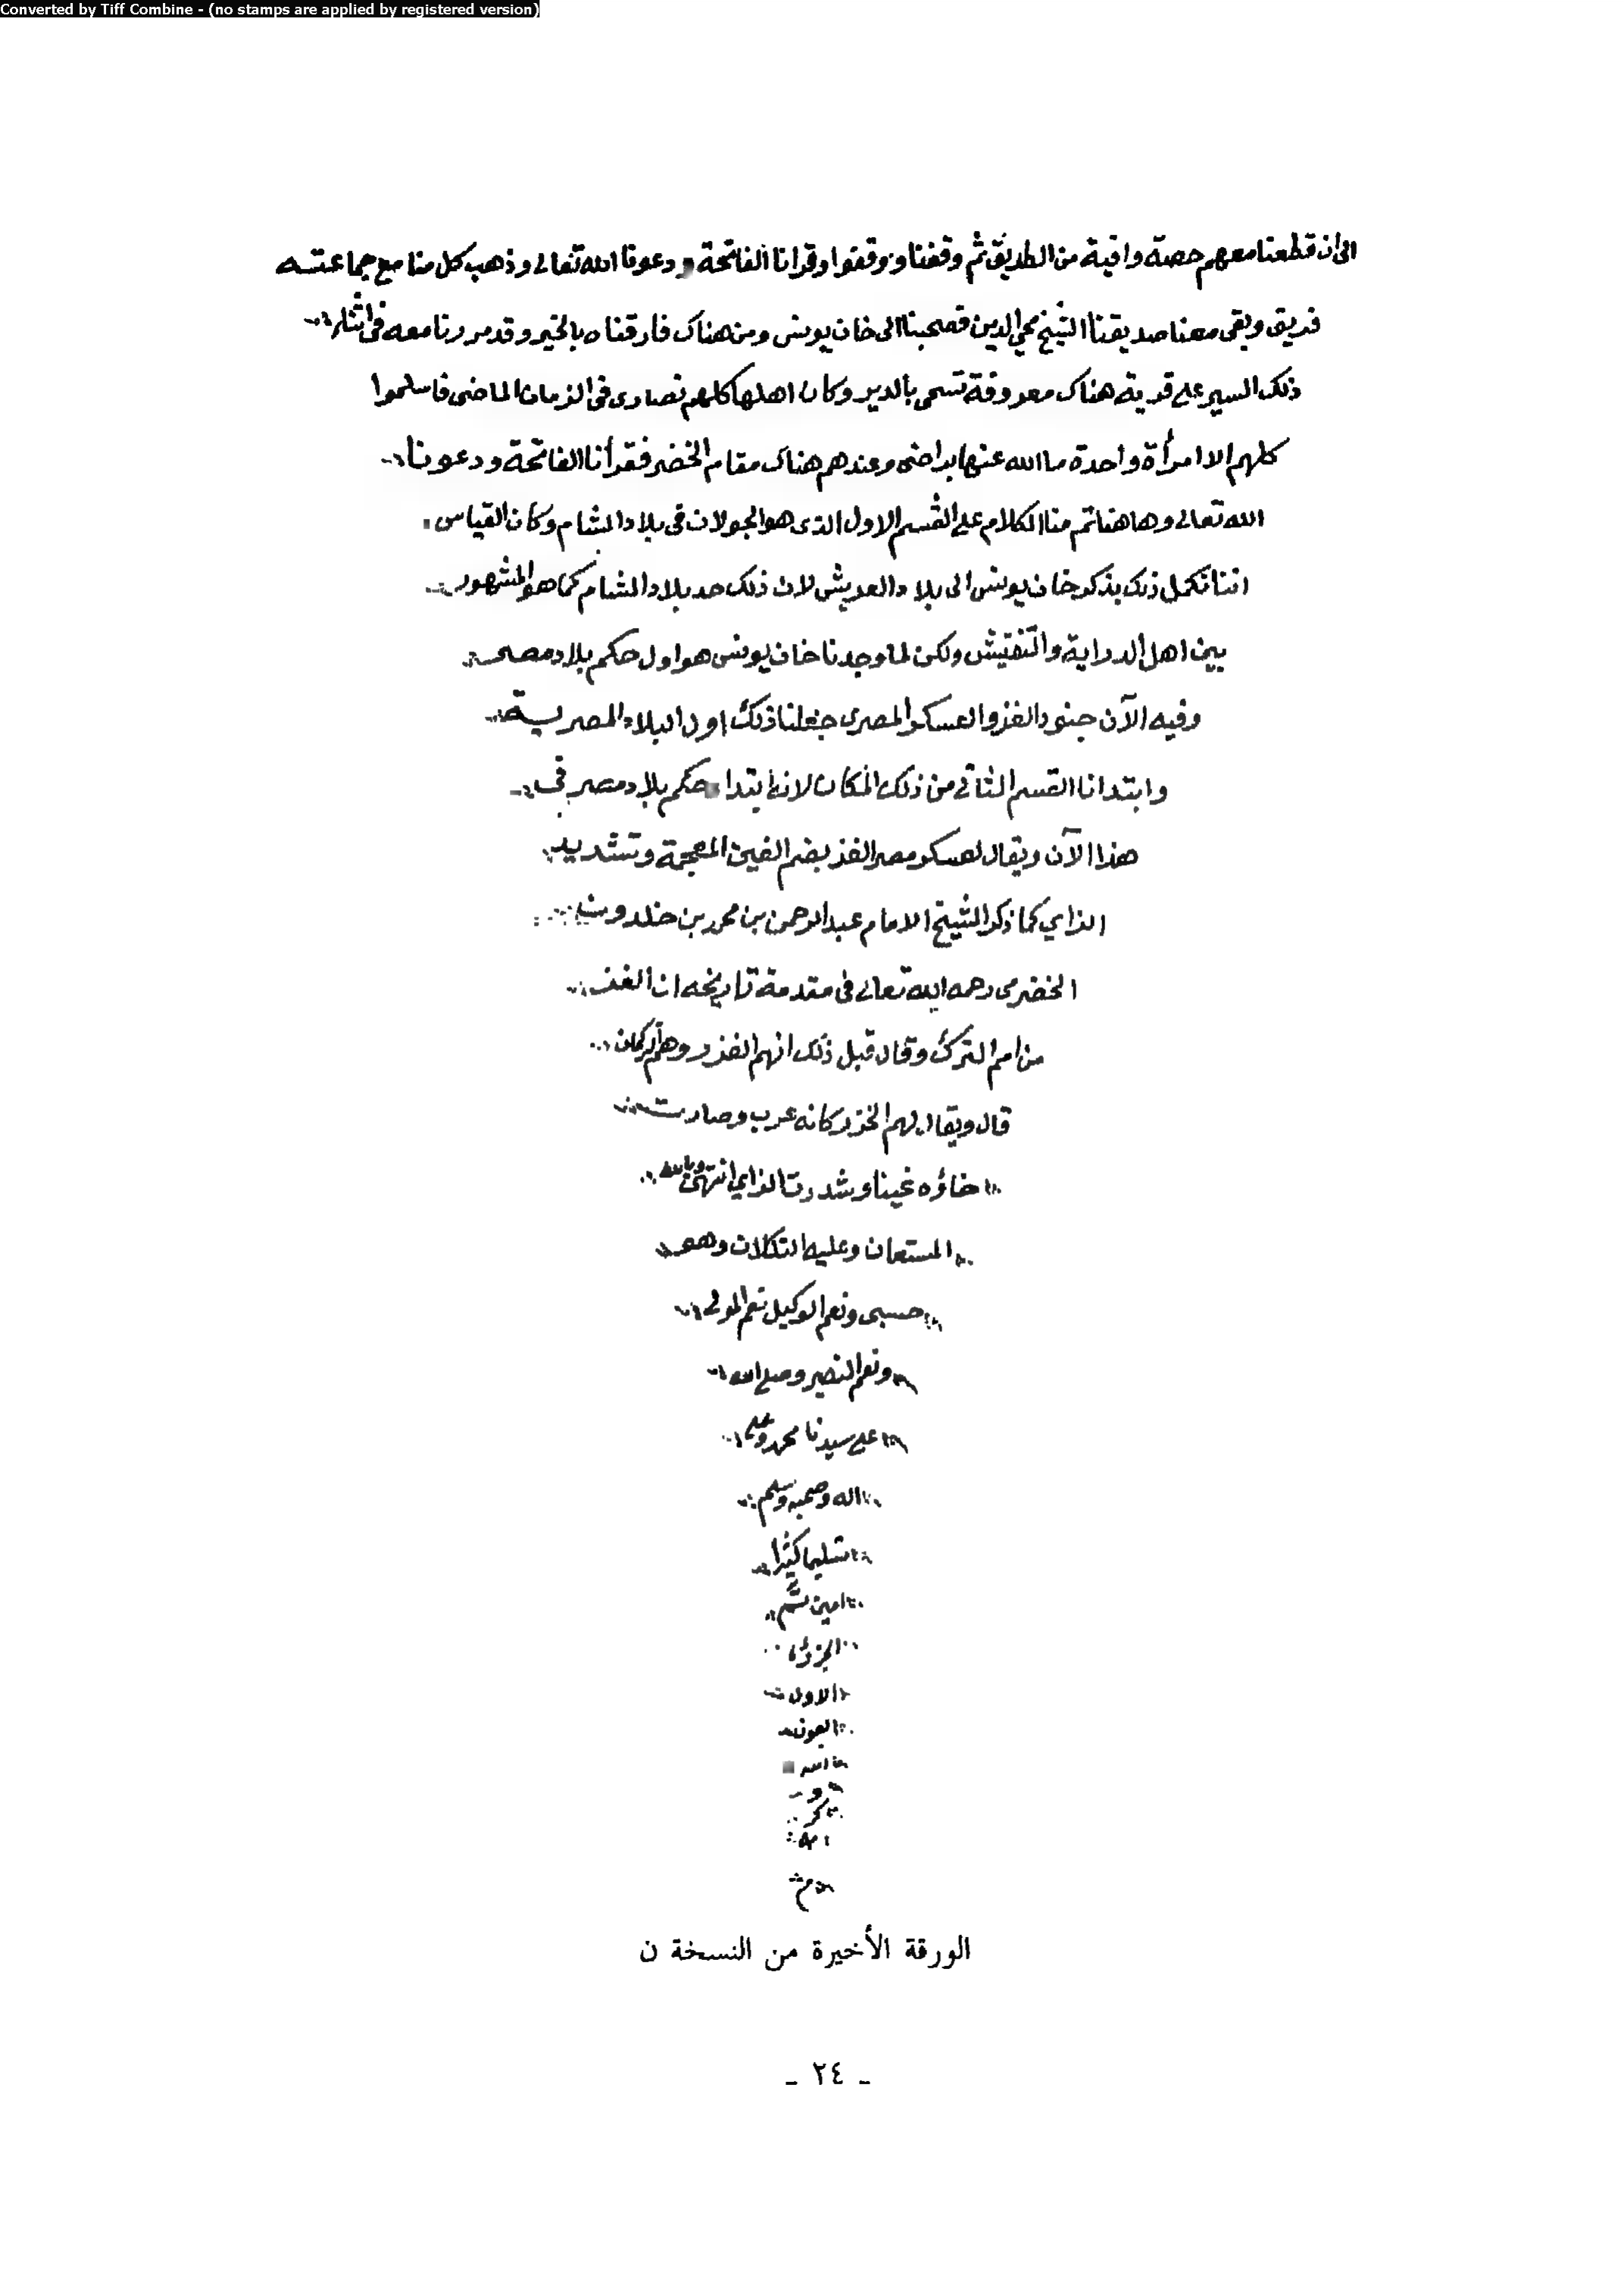 Converted by Tiff Combine - (no stamps are applied by registered version)
الى ان قطعنا معهم حصة وافية من الطريق ثم وقفنا ووقفوا وقرانا الفاتحة ودعونا الله تعالى وذهب كل منا مع جماعته
فريق وبقى معنا صديقنا الشيخ محي الدين فصحبنا الى خان يونس ومن هناك فارقناه بالخير وقد مررنا معه في اثناء
ذلك السير على قرية هناك معروفة تسمى بالدير وكان اهلها كلهم نصارى في الزمان الماضى فاسلموا
كلهم الا امرأة واحدة ما الله عنها براضى وعندهم هناك مقام الخضر فقرأنا الفاتحة ودعونا
الله تعالى وهاهنا تم منا الكلام على القسم الاول الذى هو الجولان في بلاد الشام وكان القياس
اننا نكمل ذلك بذكر خان يونس الى بلاد العريش لان ذلك حد بلاد الشام كما هو المشهور
بين اهل الدراية والتفتيش ولكن لما وجدنا خان يونس هو اول حكم بلاد مصر
وفيه الآن جنود الغز والعسكر المصرى جعلنا ذلك اول البلاد المصرية
وابتدانا القسم الثاني من ذلك المكان لانه ابتداء حكم بلاد مصر في
هذا الآن ويقال لعسكر مصر الغز بضم الغين المعجمة وتشديد
الزاي كما ذكر الشيخ الامام عبد الرحمن بن محمد بن خلدون
الخضرمى رحمه الله تعالى في مقدمة تاريخه ان الغز
من امم الترك وقال قبل ذلك انهم الغزر وهم التركمان
قال ويقال لهم الخزر كانه عرب وصارت
خاؤه غينا وشددت الزاي انتهى وبالله
المستعان وعليه التكلان وهو
حسبى ونعم الوكيل نعم المولى
ونعم النصير وصلى الله
على سيدنا محمد وعلى
اله وصحبه وسلم
تسليما كثيرا
امين تم
الجزؤ
الاول
بعون
الله
و
كر
مه
م
الورقة الأخيرة من النسخة ن
- ٢٤ -